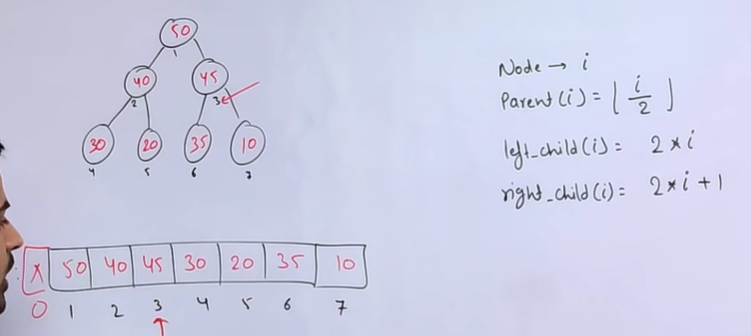 50
1
40 45
2 3
30 20 35 10
4 5 6 7
Node → i
Parent(i) = ⌊ i/2 ⌋
left_child(i) = 2 * i
right_child(i) = 2 * i + 1
X 50 40 45 30 20 35 10
0 1 2 3 4 5 6 7